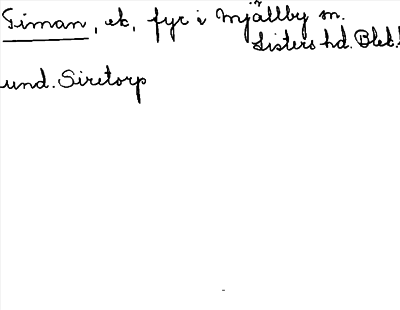 Timan, ek, fyr i Mjällby sn.
Listers hd. Blek.
und. Siretorp